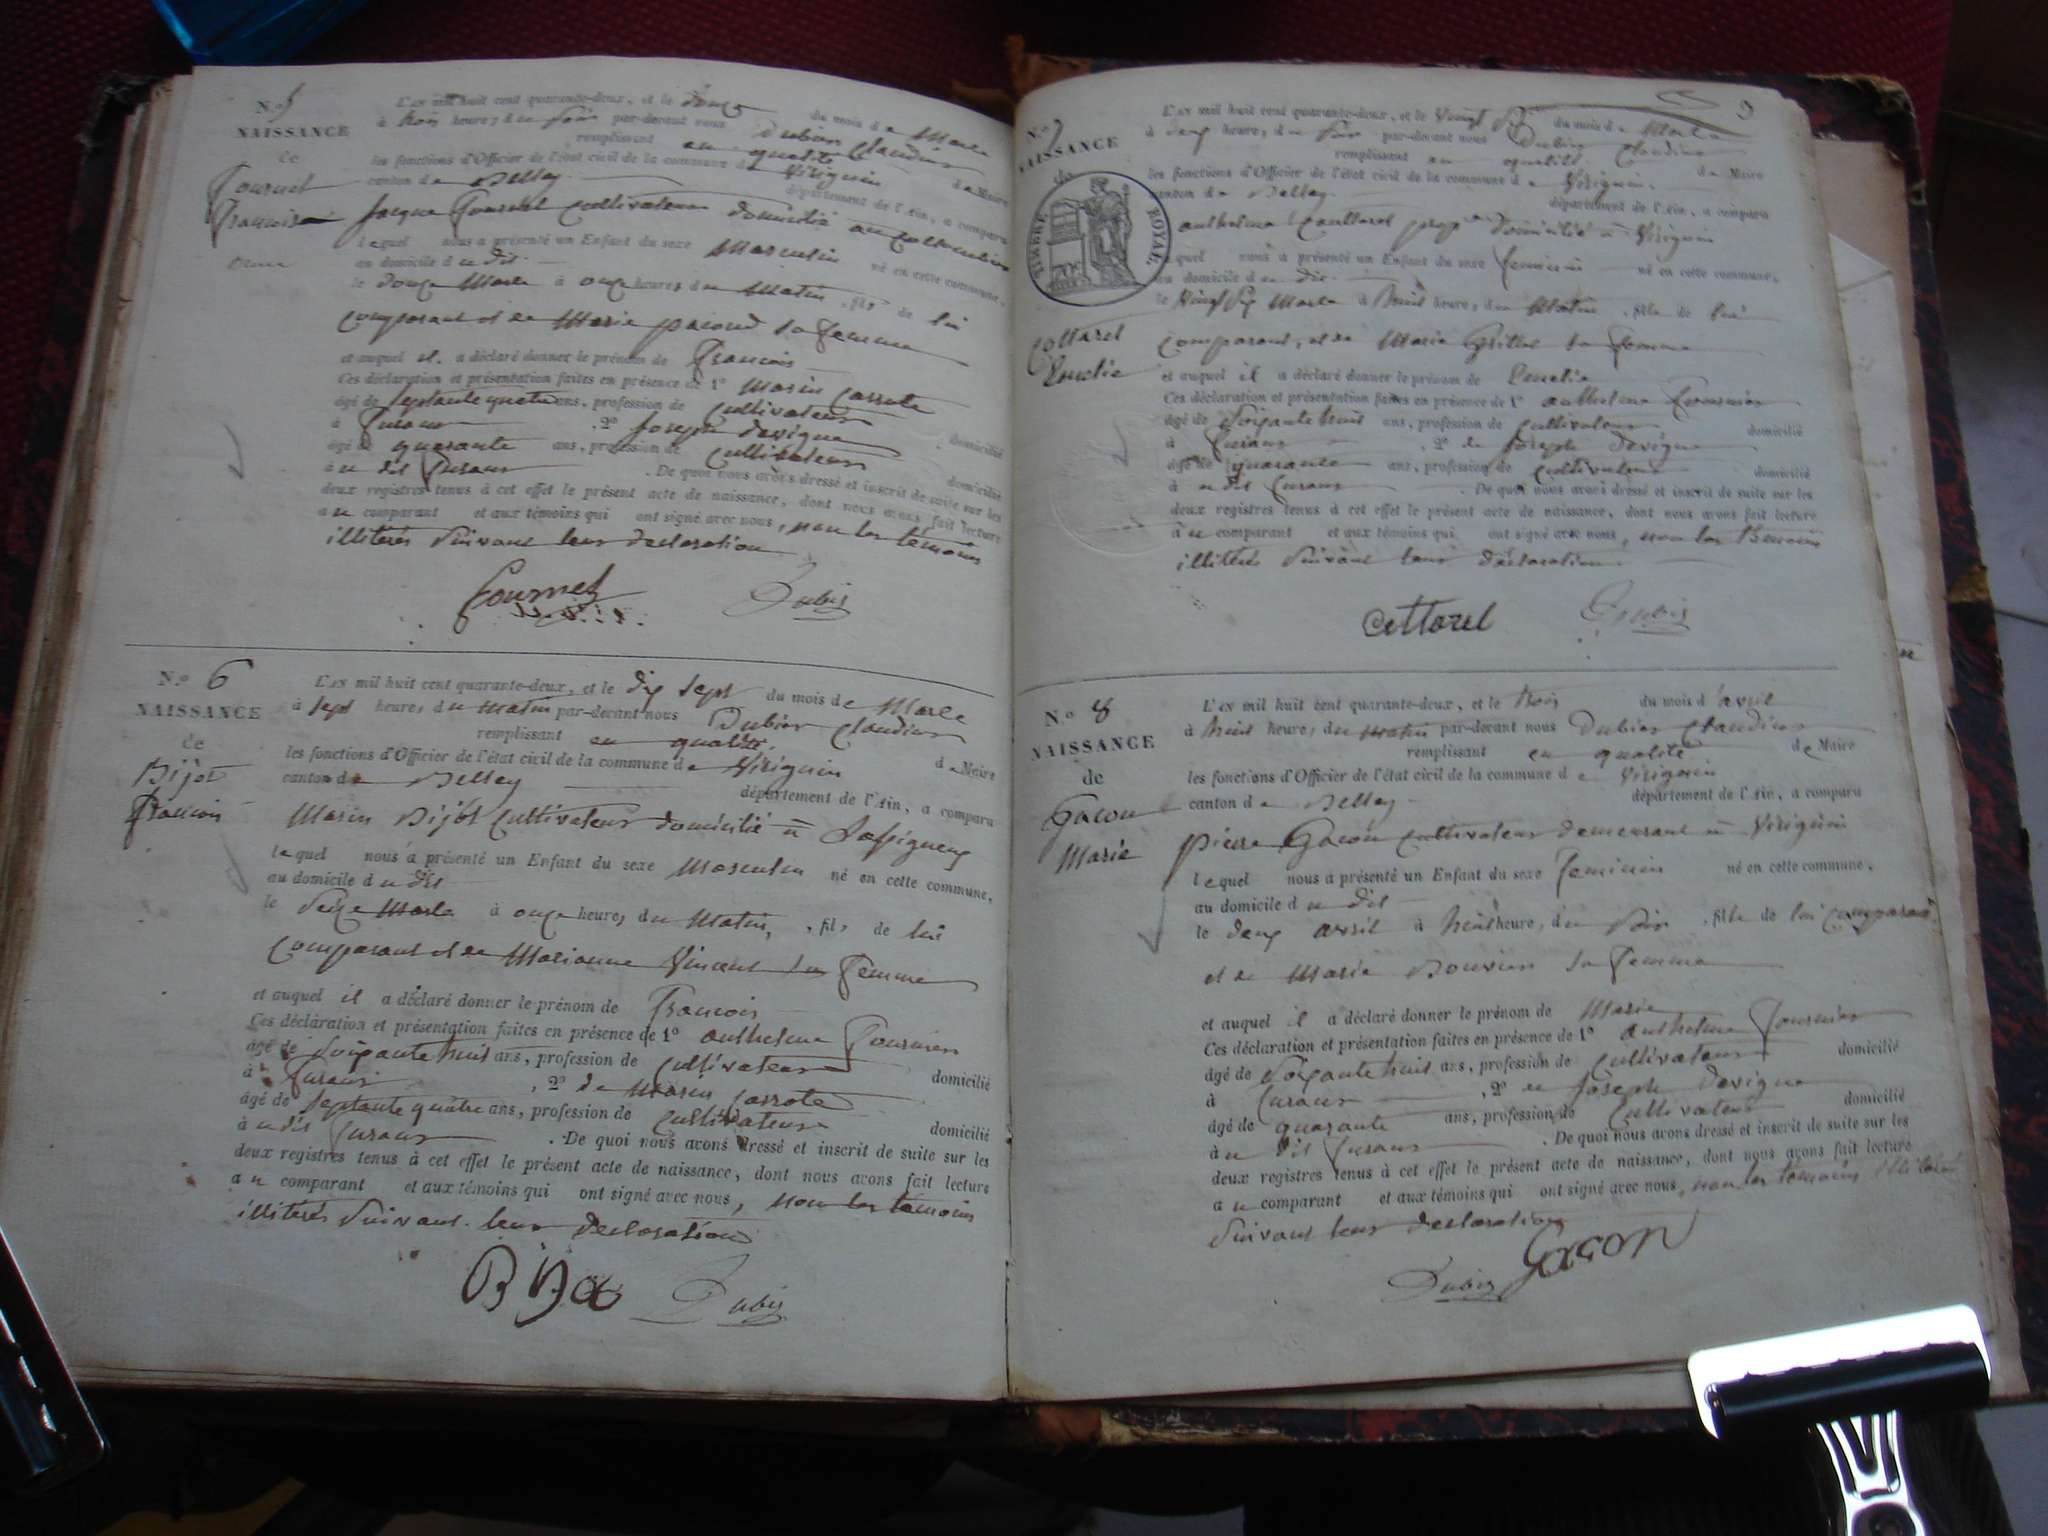 N.o 5
NAISSANCE
de
Fournet
François
L'an mil huit cent quarante-deux, et le douze du mois de Mars
à trois heures du soir par-devant nous Dubier Claudius
remplissant en qualité de Maire
les fonctions d'Officier de l'état civil de la commune de Virignin
canton de Belley département de l'Ain, a comparu
Jacque Fournet cultivateur domicilié au
lequel nous a présenté un Enfant du sexe Masculin né en cette commune,
au domicile du dit
le douze Mars à onze heures du Matin, fils de lui
comparant et de Marie sa femme
et auquel il a déclaré donner le prénom de François
Ces déclaration et présentation faites en présence de 1o Marin Carrote
âgé de septante quatre ans, profession de cultivateur domicilié
à Curaux, 2o Joseph Devigne
âgé de quarante ans, profession de cultivateur domicilié
à u dit Curaux. De quoi nous avons dressé et inscrit de suite sur les
deux registres tenus à cet effet le présent acte de naissance, dont nous avons fait lecture
au comparant et aux témoins qui ont signé avec nous, non les témoins
illitérés suivant leur declaration
Fournet Dubier
N.o 6
NAISSANCE
de
Bijot
François
L'an mil huit cent quarante-deux, et le dix sept du mois de Mars
à sept heures du Matin par-devant nous Dubier Claudius
remplissant en qualité de Maire
les fonctions d'Officier de l'état civil de la commune de Virignin
canton de Belley département de l'Ain, a comparu
Marin Bijot cultivateur domicilié à
lequel nous a présenté un Enfant du sexe Masculin né en cette commune,
au domicile du dit
le seize Mars à onze heures du Matin, fils de lui
comparant et de Marianne Vincent sa femme
et auquel il a déclaré donner le prénom de François
Ces déclaration et présentation faites en présence de 1o Anthelme Fournier
âgé de soixante huit ans, profession de cultivateur domicilié
à Curaux, 2o de Marin Carrote
âgé de septante quatre ans, profession de cultivateur domicilié
à u dit Curaux. De quoi nous avons dressé et inscrit de suite sur les
deux registres tenus à cet effet le présent acte de naissance, dont nous avons fait lecture
au comparant et aux témoins qui ont signé avec nous, non les témoins
illitérés suivant leur declaration
Bijot Dubier
9
N.o 7
NAISSANCE
de
TIMBRE ROYAL
Cottarel
L'an mil huit cent quarante-deux, et le vingt six du mois de Mars
à deux heures du soir par-devant nous Dubier Claudius
remplissant en qualité de Maire
les fonctions d'Officier de l'état civil de la commune de Virignin
canton de Belley département de l'Ain, a comparu
anthelme Cottarel domicilié à Virignin
lequel nous a présenté un Enfant du sexe feminin né en cette commune,
au domicile du dit
le vingt six Mars à huit heures du Matin, fille de lui
comparant, et de Marie Grillet sa femme
et auquel il a déclaré donner le prénom de
Ces déclaration et présentation faites en présence de 1o anthelme Fournier
âgé de soixante huit ans, profession de cultivateur domicilié
à Curaux, 2o de Joseph Devigne
âgé de quarante ans, profession de cultivateur domicilié
à u dit Curaux. De quoi nous avons dressé et inscrit de suite sur les
deux registres tenus à cet effet le présent acte de naissance, dont nous avons fait lecture
au comparant et aux témoins qui ont signé avec nous, non les témoins
illitérés suivant leur déclaration
Cottarel Dubier
N.o 8
NAISSANCE
de
Gacon
Marie
L'an mil huit cent quarante-deux, et le trois du mois d'avril
à huit heures du Matin par-devant nous Dubier Claudius
remplissant en qualité de Maire
les fonctions d'Officier de l'état civil de la commune de Virignin
canton de Belley département de l'Ain, a comparu
pierre Gacon cultivateur demeurant à Virignin
lequel nous a présenté un Enfant du sexe feminin né en cette commune,
au domicile du dit
le deux avril à huit heures du soir, fille de lui comparant
et de Marie Bouvier sa femme
et auquel il a déclaré donner le prénom de Marie
Ces déclaration et présentation faites en présence de 1o anthelme Fournier
âgé de soixante huit ans, profession de cultivateur domicilié
à Curaux, 2o de Joseph Devigne
âgé de quarante ans, profession de cultivateur domicilié
à u dit Curaux. De quoi nous avons dressé et inscrit de suite sur les
deux registres tenus à cet effet le présent acte de naissance, dont nous avons fait lecture
au comparant et aux témoins qui ont signé avec nous, non les témoins illitérés
suivant leur declaration
Dubier Gacon